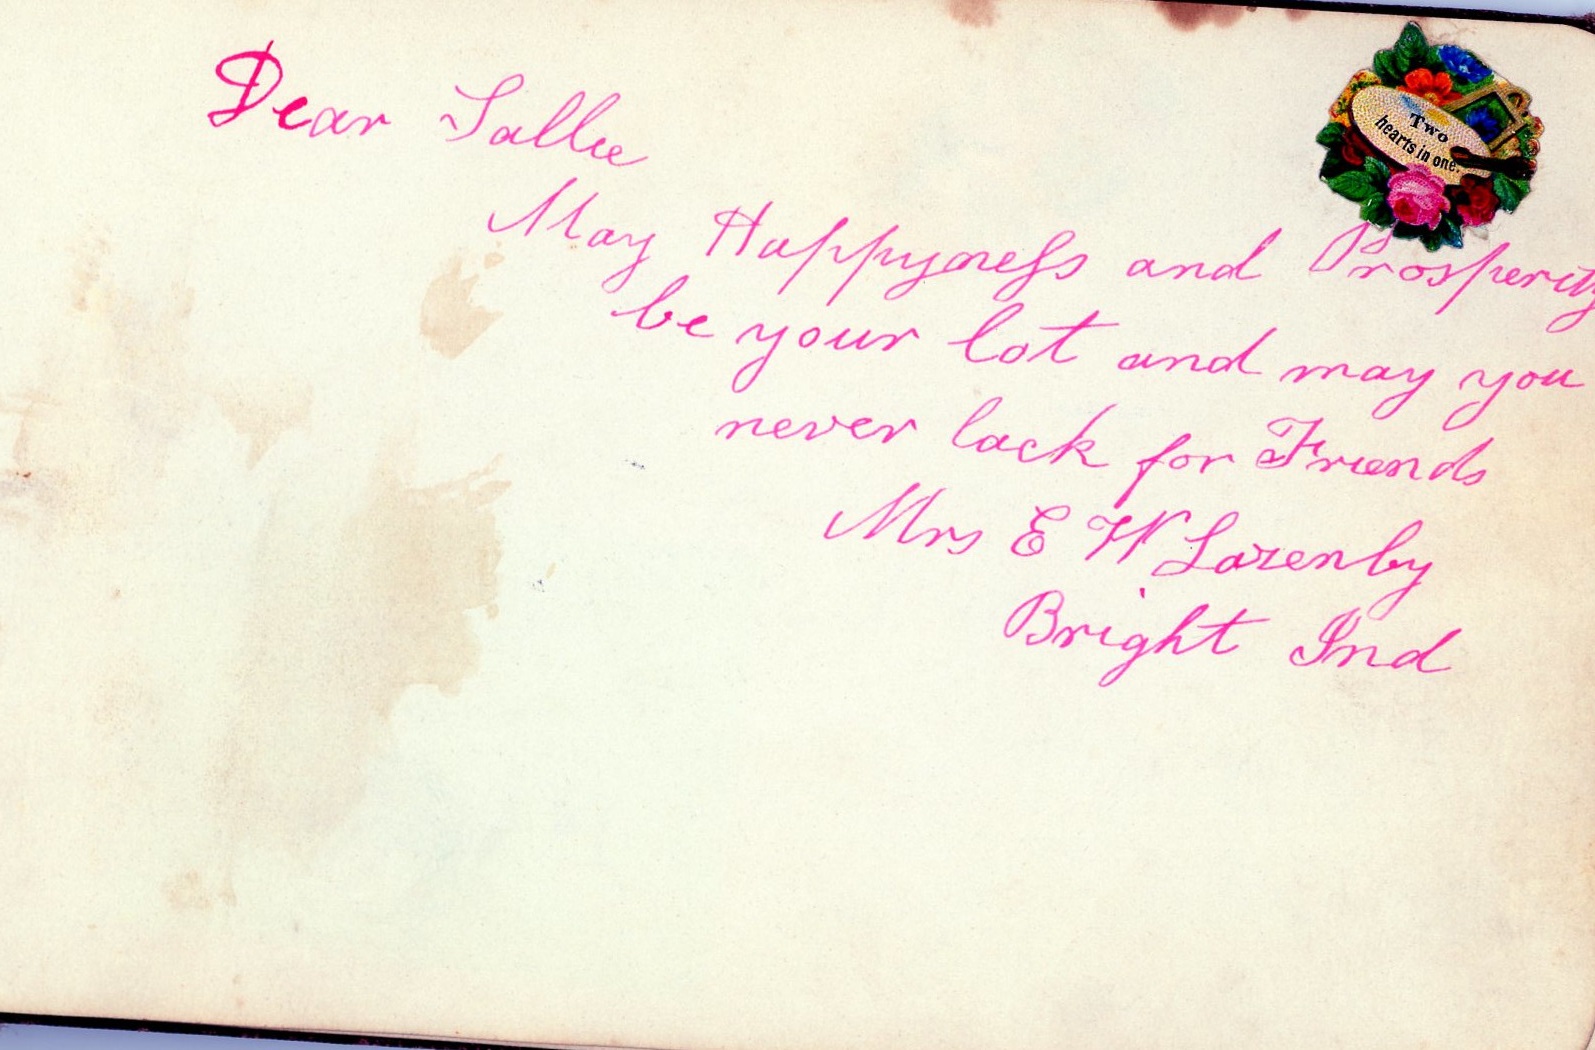 Dear Sallie
Two
hearts in one.
May Happyness and Prosperity
be your lot and may you
never lack for Friends
Mrs E W Lazenby
Bright Ind